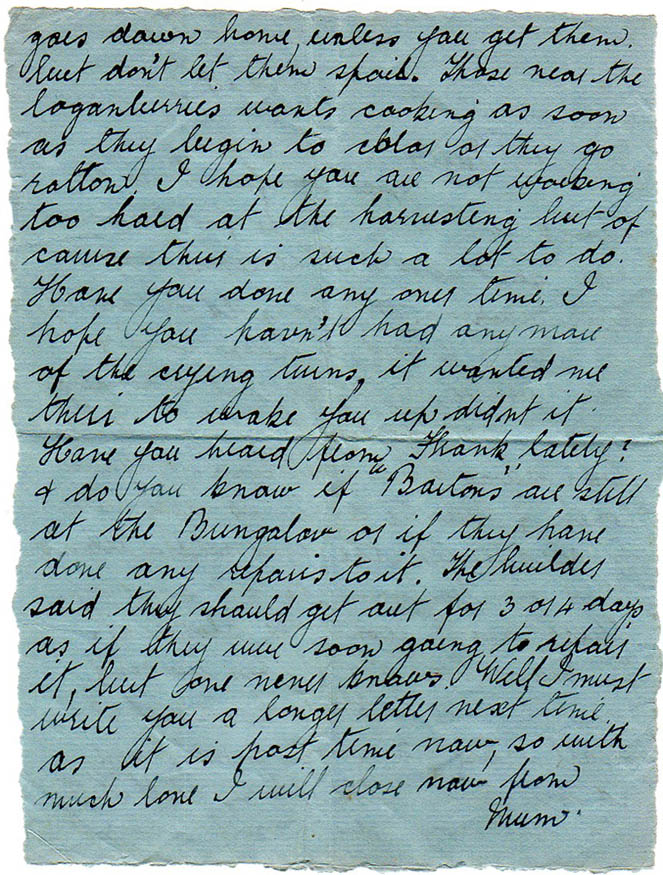 goes down home, unless you get them.
but don't let them spoil. Those near the
loganberries wants cooking as soon
as they begin to color or they go
rotton. I hope you are not working
too hard at the harvesting but of
cause their is such a lot to do.
Have you done any over time. I
hope you havn't had any more
of the crying turns, it wanted me
their to wake you up didnt it.
Have you heard from Frank lately?
& do you know if "Bartons" are still
at the Bungalow or if they have
done any repairs to it. The builder
said they should get out for 3 or 4 days
as if they were soon going to repair
it, but one never knows. Well I must
write you a longer letter next time.
as it is post time now, so with
much love I will close now from
Mum.